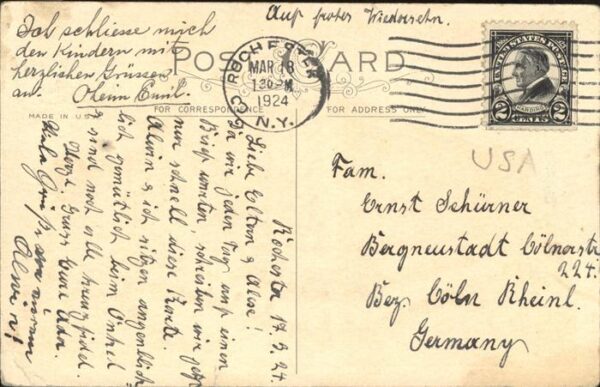 Ich schliesse mich
den Kindern mit
herzlichen Grüssen
an. Oheim Emil.
Auf frohes Wiedersehn.
POST CARD
FOR CORRESPONDENCE
FOR ADDRESS ONLY
MADE IN U.S.A.
ROCHESTER
MAR 18
1924
N.Y.
UNITED STATES POSTAGE
HARDING
2 2
USA
Rochester 17.3.24.
Liebe Eltern & Alwe!
Da wir jeden Tag auf einen
Brief warten, schreiben wir jetzt
nur schnell diese Karte.
Alwin & ich sitzen augenblick-
lich gemütlich beim Onkel
& sind noch alle kreuzfidel.
Herzl. Gruss Eure Ada.
Viele Grüße von
Alwin!
Fam.
Ernst Schürner
Bergneustadt Cölnerstr
224.
Bez. Cöln Rheinl.
Germany